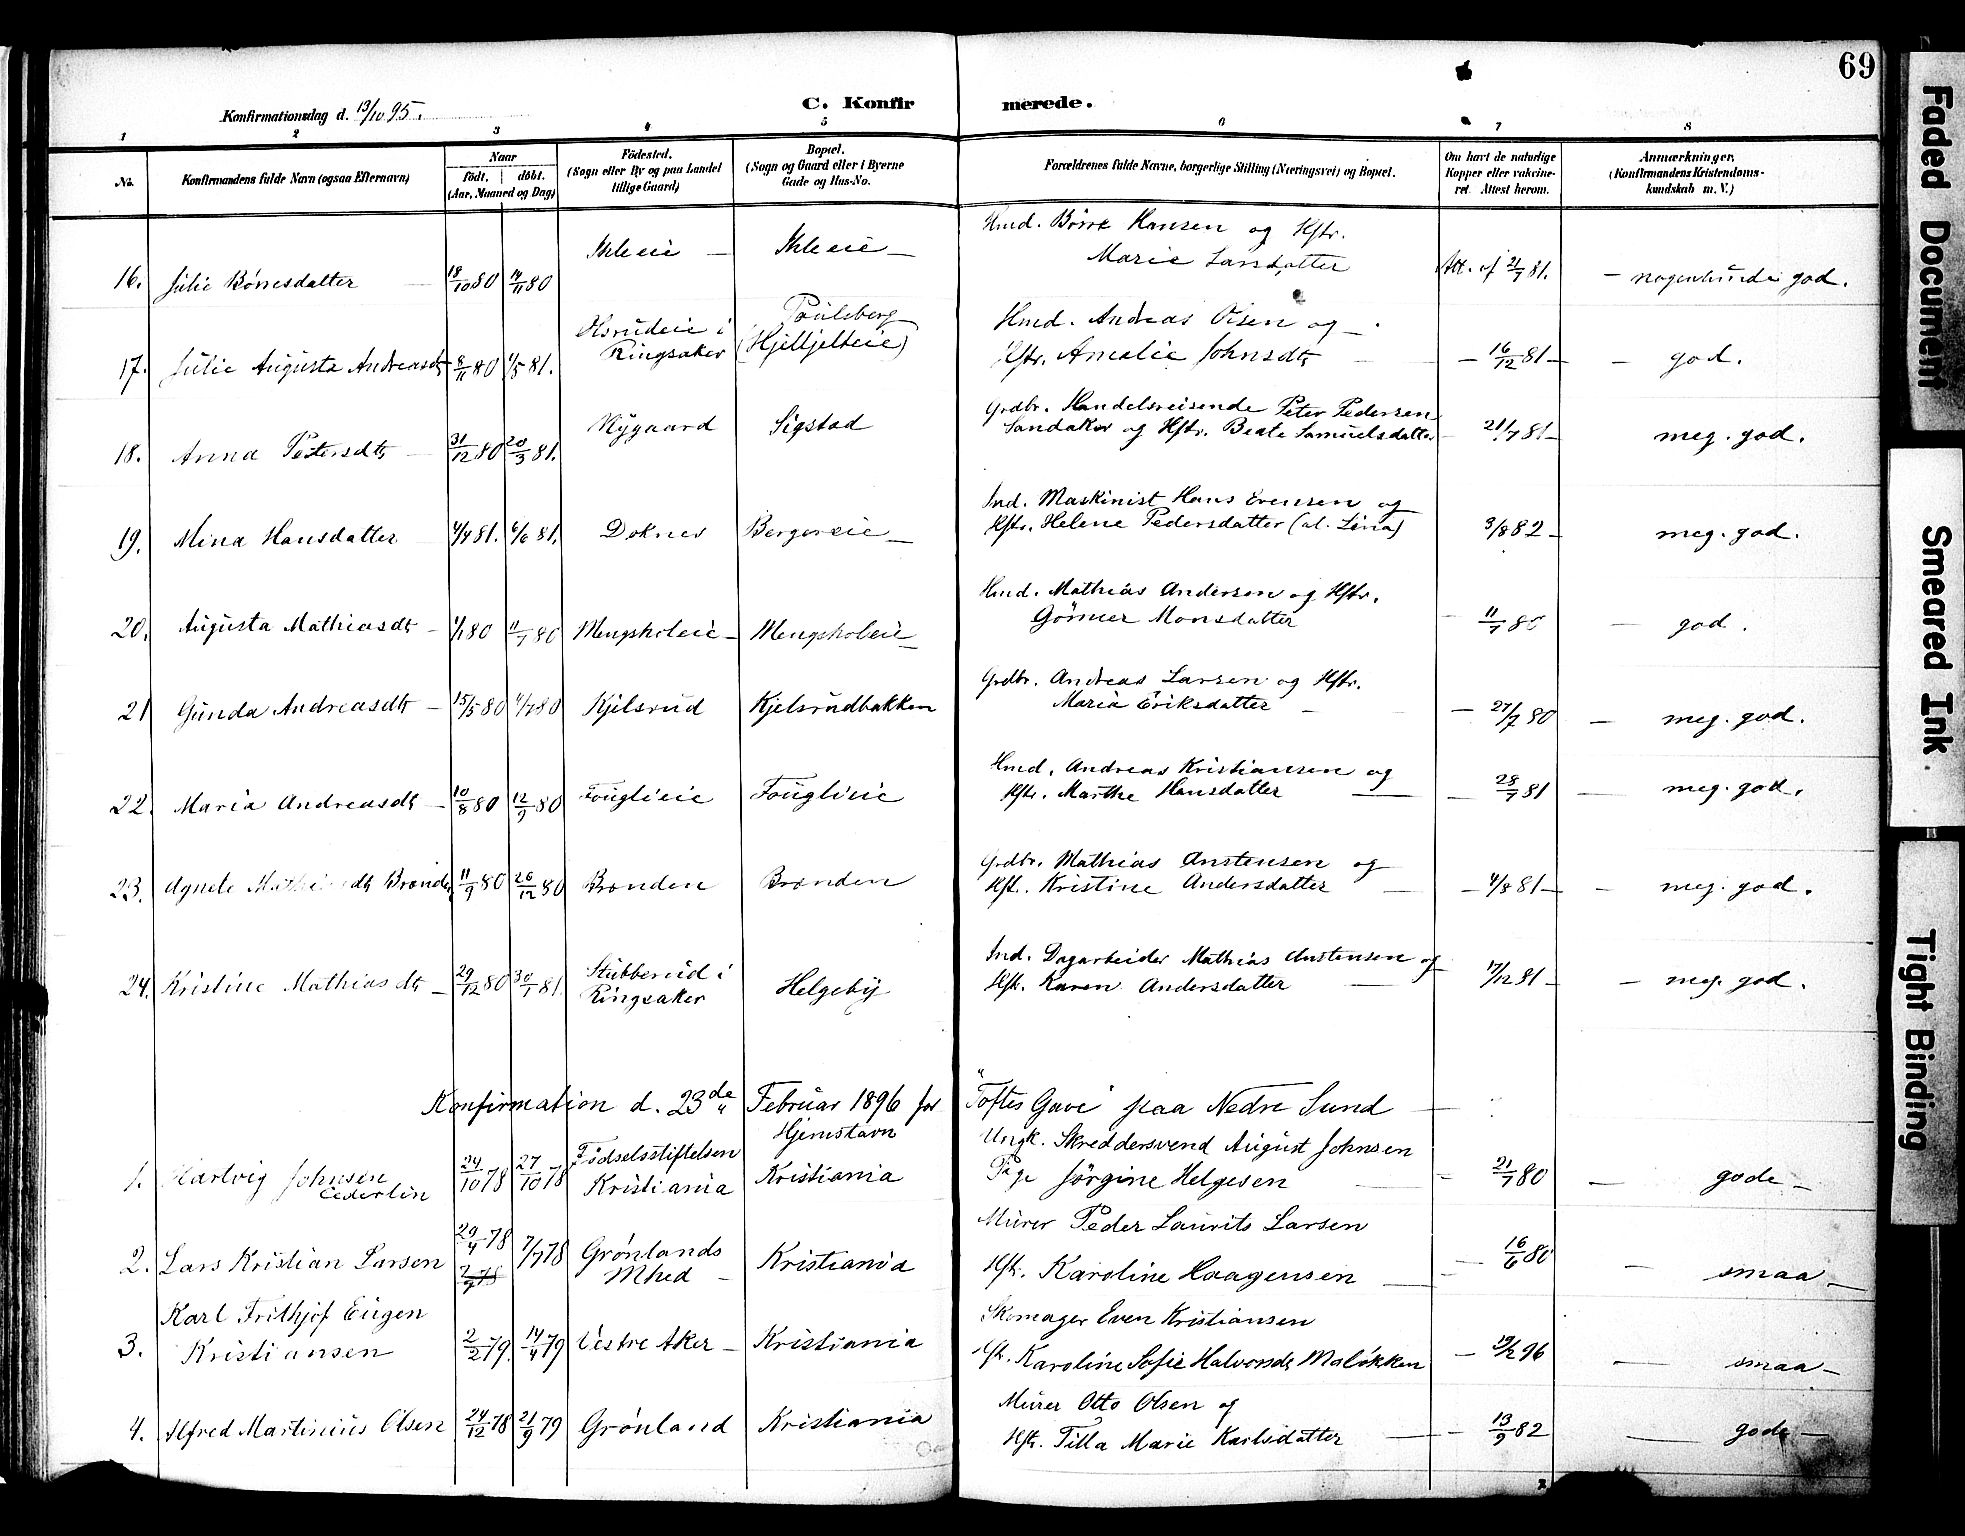 69
Konfirmationsdag d. 13/10 95.
C. Konfirmerede.
1 2 3 4 5 6 7 8
No.
Konfirmandens fulde Navn (ogsaa Efternavn)
Naar
født. døbt.
(Aar, Maaned og Dag)
Födested.
(Sogn eller By og paa Landet
tillige Gaard)
Bopæl.
(Sogn og Gaard eller i Byerne
Gade og Hus-No.
Forældrenes fulde Navne, borgerlige Stilling (Næringsvei) og Bopæl.
Om havt de naturlige
Kopper eller vakcine-
ret. Attest herom.
Anmærkninger,
(Konfirmandens Kristendoms-
kundskab m. V.)
16. Julie Börresdatter 18/10 80 14/11 80 Ihleeie — Ihleeie —
Hmd. Börre Hansen og Hstr.
Marie Larsdatter
Att. af 21/7 81. — nogenlunde god.
17. Julie Augusta Andreasdt 8/11 80 1/5 81. Olsrudeie i
Ringsaker
Paulsberg
(Hjelljelteie)
Hmd. Andreas Olsen og —
Hstr. Amalie Johnsdt
— 16/12 81 — — god.
18. Anna Petersdt 31/12 80 20/3 81. Nygaard Sigstad
Grdbr. Handelsreisende Peter Pedersen
Sandaker og Hstr. Beate Samuelsdatter
21/7 81 — meg. god.
19. Mina Hansdatter 4/4 81. 6/6 81. Doknes Bergereie —
Ind. Maskinist Hans Evensen og
Hstr. Helene Pedersdatter (al. Lina)
3/8 82 — meg. god.
20. Augusta Mathiasdt — 1/1 80 11/7 80 Mengskoleie — Mengskoleie —
Hmd. Mathias Andersen og Hstr.
Gönner Monsdatter
— 11/7 80 — god.
21 Gunda Andreasdt — 15/5 80 4/7 80 Kjelsrud Kjelsrudbakken
Grdbr. Andreas Larsen og Hstr.
Maria Eriksdatter —
— 27/7 80 — meg. god.
22. Maria Andreasdt — 10/8 80 12/9 80 Fouglieie Fouglieie
Hmd. Andreas Kristiansen og
Hstr. Marthe Hansdatter —
— 28/7 81 — meg. god.
23. Agnete Mathiasdt Brænden 11/9 80 26/12 80 Brænden Brænden
Grdbr. Mathias Anstensen og
Hst. Kristine Andersdatter —
— 4/8 81 — — meg. god.
24. Kristine Mathiasdt — 29/12 80 30/1 81 Stubberud i
Ringsaker
Helgeby
Ind. Dagarbeider Mathias Anstensen og
Hst. Karen Andersdatter —
17/12 81 — — meg. god.
Konfirmation d. 23de Februar 1896 for "Toftes Gave" paa Nedre Sund —
Hjemstavn
1. Hartvig Johnsen
Cederlin
24/10 78 27/10 78 Födselsstiftelsen
Kristiania
Kristiania
Ungk. Skreddersvend August Johnsen
Pige Jörgine Helgesen —
— 21/7 80 — gode —
2. Lars Kristian Larsen 29/4 78 7/7 78 Grönlands
Mhed —
Kristiania
Murer Peder Laurits Larsen
Hst. Karoline Haagensen —
— 16/6 80 — smaa —
3. Karl Frithjof Eugen
Kristiansen
2/2 79. 14/4 79 Vestre Aker — Kristiania
Skomager Even Kristiansen
Hst. Karoline Sofie Halvorsdt Maløkken
— 19/2 96 — smaa —
4. Alfred Martinius Olsen 24/12 78 21/9 79 Grönland Kristiania
Murer Otto Olsen og
Hst. Tilla Marie Karlsdatter —
— 13/9 82 — gode —
Faded Document
Smeared Ink.
Tight Binding